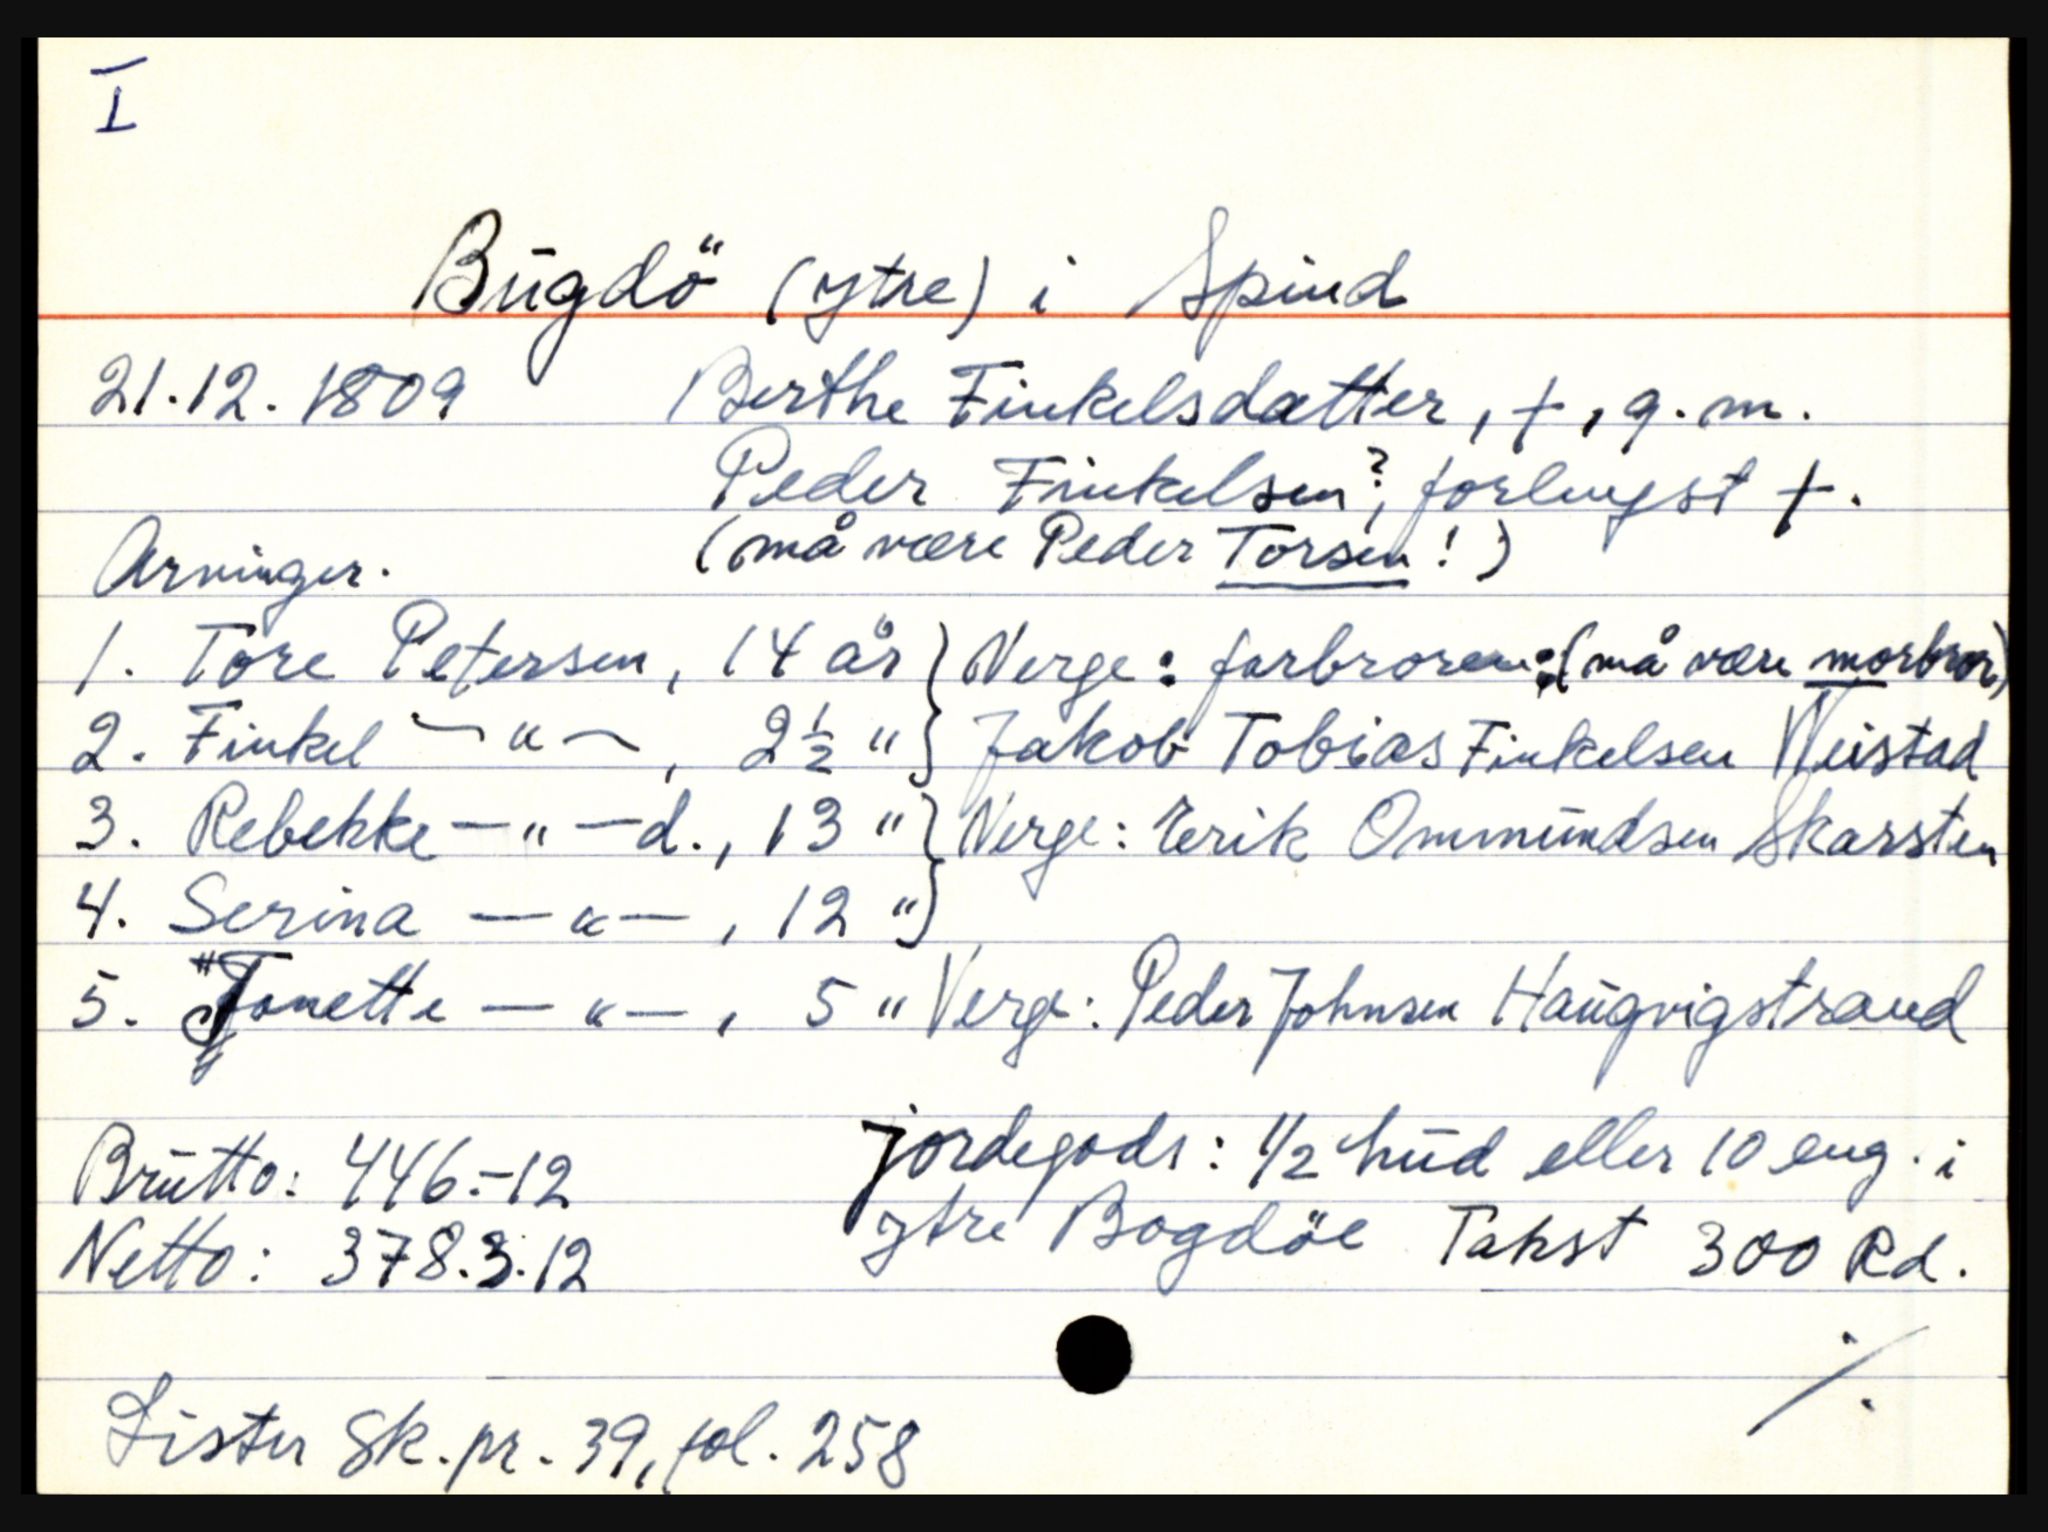 I
Bugdö (ytre) i Spind
21.12.1809 Berthe Finkelsdatter, †, g.m.
Peder Finkelsen?, forlengst †.
(må være Peder Torsen!)
Arvinger.
1. Tore Petersen, 14 år } Verge: farbroren: (må være morbror)
2. Finkel —"—, 2½ " } Jakob Tobias Finkelsen Weistad
3. Rebekke —"—d., 13 " } Verge: Erik Ommundsen Skarsten
4. Serina —"—, 12 " }
5. Tonette —"—, 5 " Verge: Peder Johnsen Haugvigstrand
Brutto: 446.-12 Jordegods: 1/2 hud eller 10 eng. i
Netto: 378.3.12 ytre Bogdöe Takst 300 Rd.
./.
Lister Sk.pr. 39, fol. 258